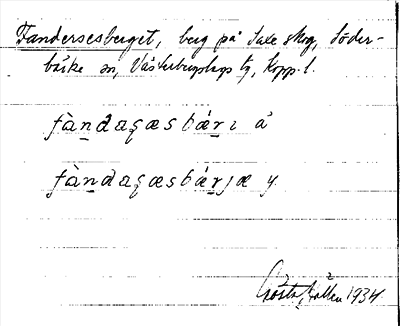 Fandersesberget, berg på Saxe skog, Söder-
bärke sn, Västerbergslags tg, Kopp. l.
fàndaʂæsbárı å
fàndaʂæsbárjæ y.
Gösta 1934.